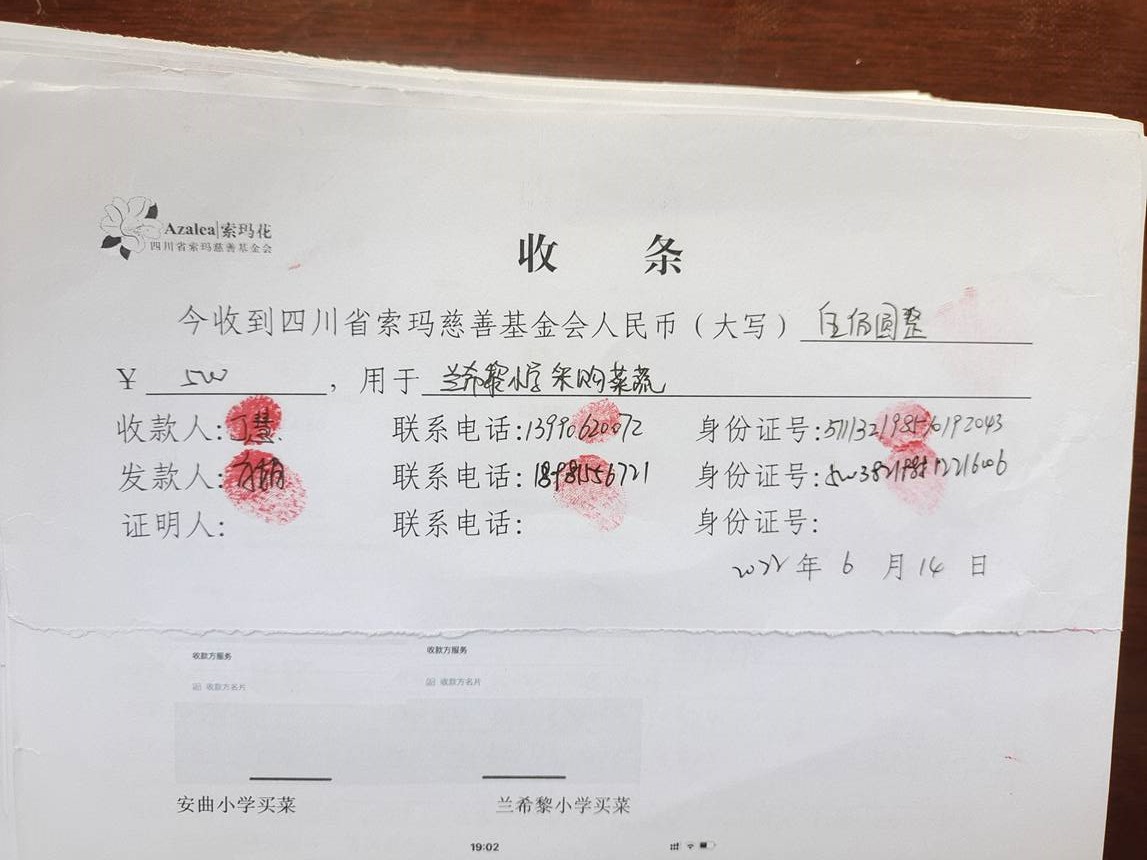 Azalea|索玛花
四川省索玛慈善基金会
收 条
今收到四川省索玛慈善基金会人民币（大写）伍佰圆整
￥ 500 ，用于 兰希黎小学采购菜蔬
收款人: 丁慧 联系电话:13990620072 身份证号:
发款人: 联系电话:18981556721 身份证号:
证明人: 联系电话: 身份证号:
2022 年 6 月 14 日
收款方服务 收款方服务
收款方名片 收款方名片
安曲小学买菜 兰希黎小学买菜
19:02